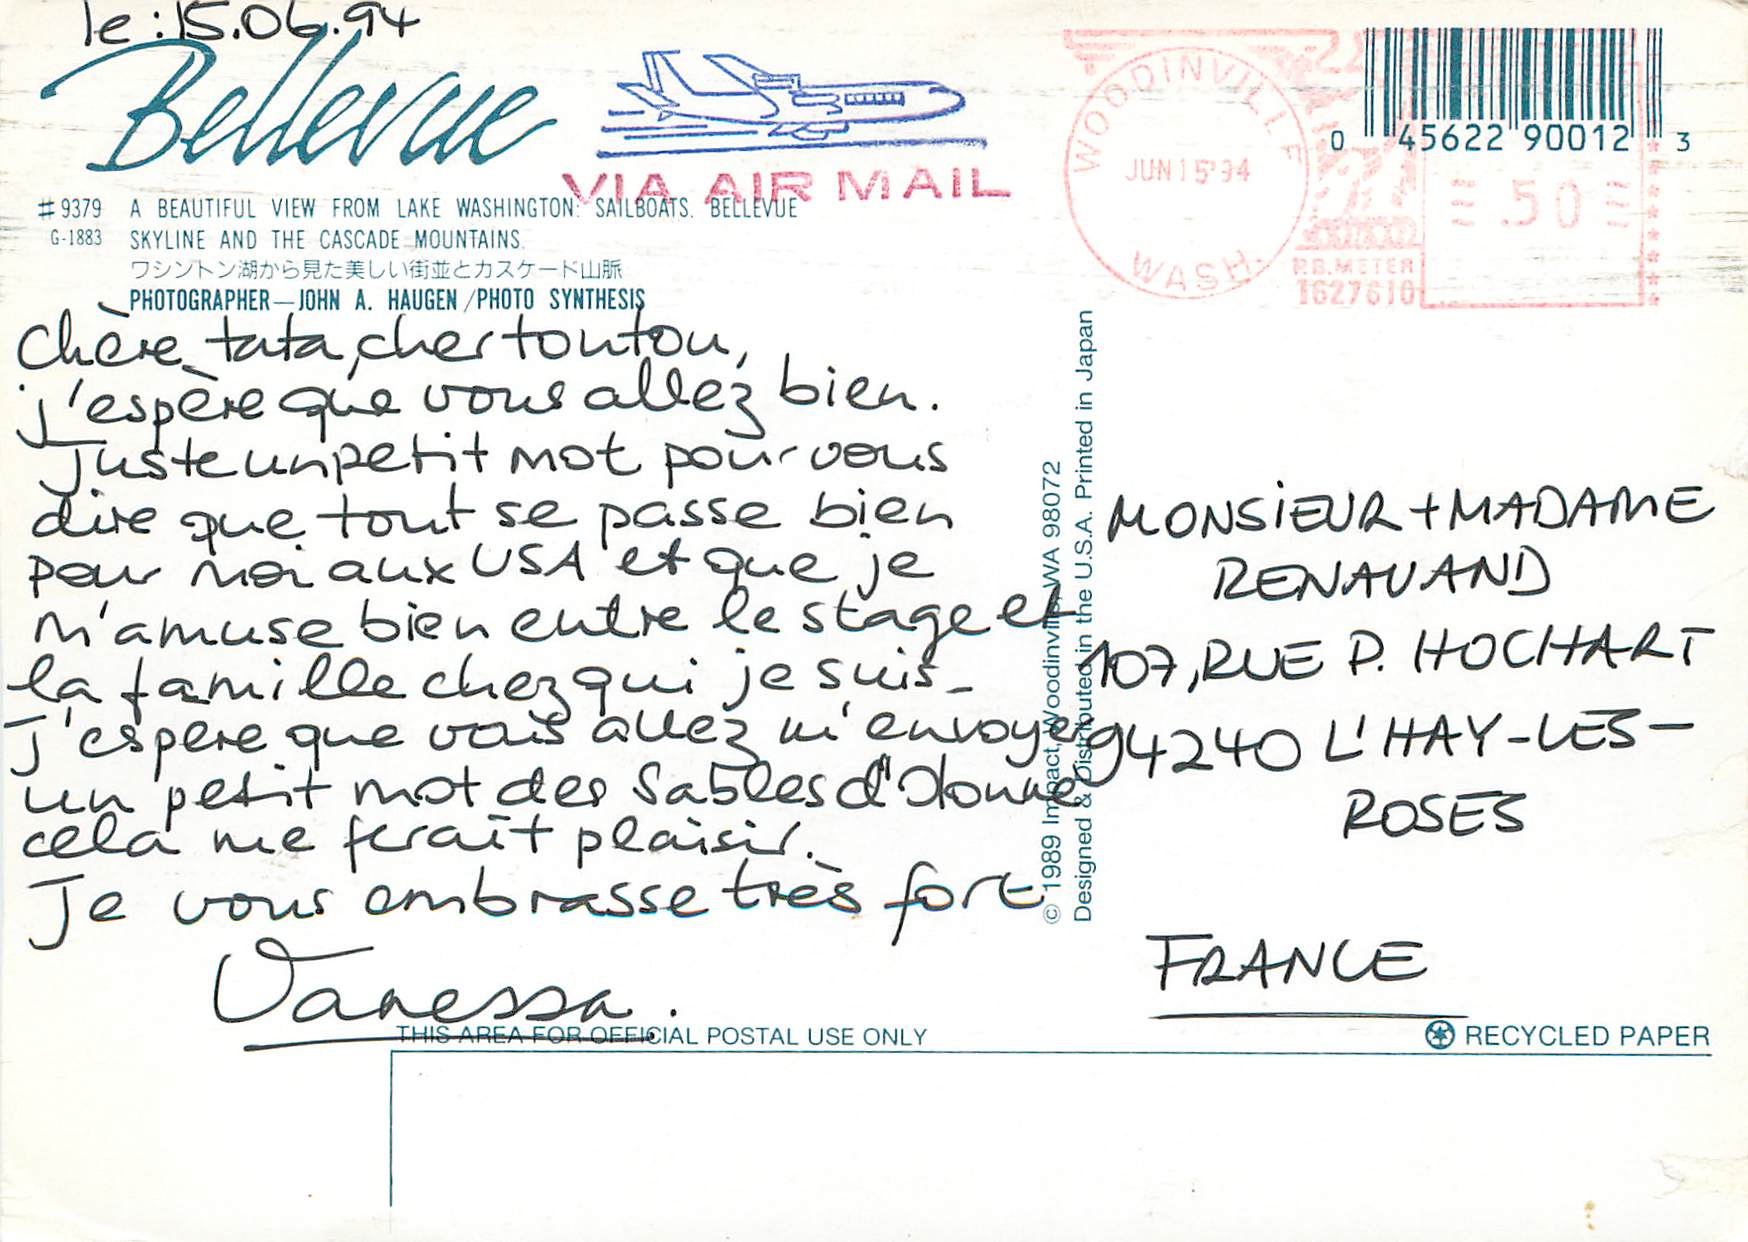 le : 15.06.94
Bellevue
VIA AIR MAIL
WOODINVILLE
JUN 15 '94
WASH.
P.B. METER
1627610
.50
0 45622 90012 3
#9379 A BEAUTIFUL VIEW FROM LAKE WASHINGTON: SAILBOATS, BELLEVUE
G-1883 SKYLINE AND THE CASCADE MOUNTAINS.
ワシントン湖から見た美しい街並とカスケード山脈
PHOTOGRAPHER—JOHN A. HAUGEN/PHOTO SYNTHESIS
Chère tata, cher tonton,
j'espère que vous allez bien.
Juste un petit mot pour vous
dire que tout se passe bien
pour moi aux USA et que je
m'amuse bien entre le stage et
la famille chez qui je suis_
J'espère que vous allez m'envoyer
un petit mot des Sables d'Olonne
cela me ferait plaisir.
Je vous embrasse très fort
Vanessa.
© 1989 Impact, Woodinville, WA 98072
Designed & Distributed in the U.S.A. Printed in Japan
MONSIEUR + MADAME
RENAUAND
107, RUE P. HOCHART
94240 L'HAY-LES-
ROSES
FRANCE
THIS AREA FOR OFFICIAL POSTAL USE ONLY
RECYCLED PAPER